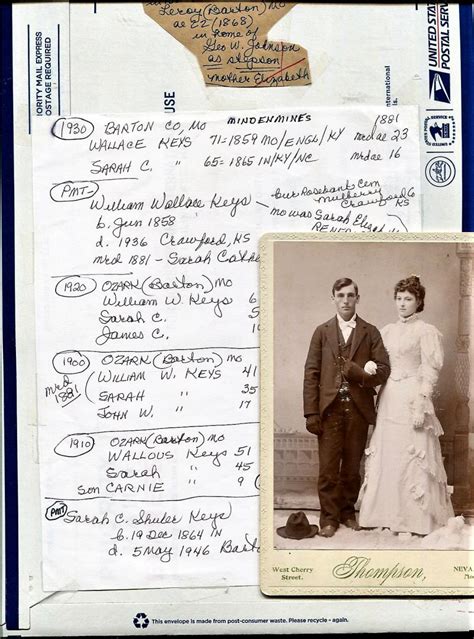 Leroy (Barton) Mo
ae 22 (1868)
in home of
Geo W. Johnson
as stepson
mother Elizabeth
UNITED STATES
POSTAL SERVICE
ORITY MAIL EXPRESS
OSTAGE REQUIRED
USE
international
1930 BARTON CO, MO MINDENMINES 1891
WALLACE KEYS 71=1859 MO/ENGL/KY mrd ae 23
SARAH C. " 65=1865 IN/KY/NC mrd ae 16
PMT-
William Wallace Keys - bur Rosebank Cem
Mulberry
Crawford Co
KS
b. Jun 1858 mo was Sarah Eliza
d. 1936 Crawford, KS
mrd 1881 - Sarah Cath
1920 OZARK (Barton) MO
William W. Keys 6
Sarah C. 5
James C. 1
1900 OZARK (Barton) MO
mrd 1881
WILLIAM W. KEYS 41
SARAH " 35
JOHN W. " 17
1910 OZARK (Barton) MO
WALLOUS Keys 51
Sarah " 45
son CARNIE " 9
PMT
Sarah C. Shuler Keys
b. 19 Dec 1864 IN
d. 5 May 1946 Barto
West Cherry
Street.
Thompson,
NEVA
Mo
This envelope is made from post-consumer waste. Please recycle - again.